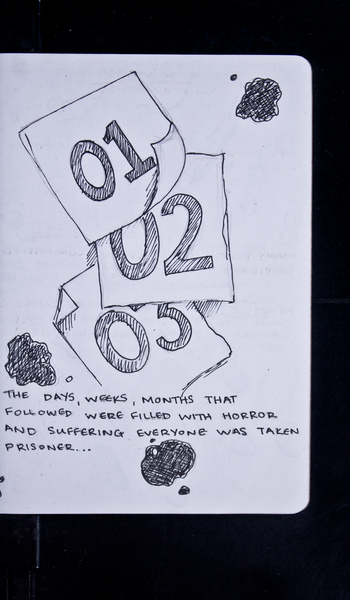 01
02
03
THE DAYS, WEEKS, MONTHS THAT
FOLLOWED WERE FILLED WITH HORROR
AND SUFFERING. EVERYONE WAS TAKEN
PRISONER...